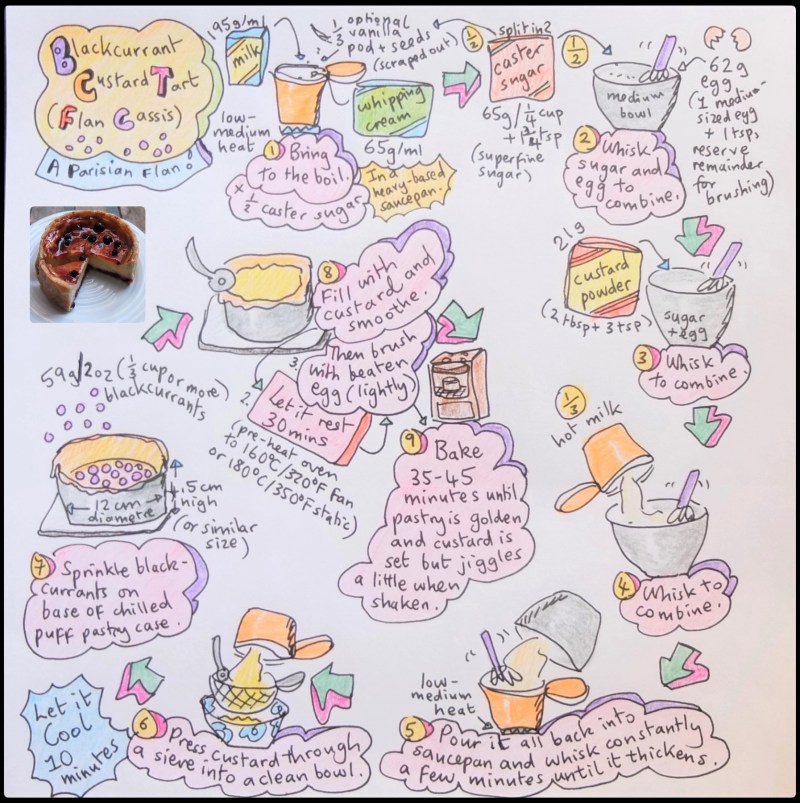 Blackcurrant
Custard Tart
(Flan Cassis)
A Parisian Flan
95g/ml
milk
1/3 optional
vanilla
pod + seeds
(scraped out)
low-
medium
heat
whipping
cream
65g/ml
1 Bring
to the boil.
x 1/2 caster sugar
In a
heavy-based
saucepan.
1/2
split in 2
caster
sugar
65g/1/4 cup
(superfine
sugar)
1/2
medium
bowl
62g
egg
(1 medium-
sized egg
+ 1 tsp,
reserve
remainder
for brushing)
2 Whisk
sugar and
egg to
combine.
21g
custard
powder
(2 tbsp + 3 tsp)
sugar
+ egg
3 Whisk
to combine.
1/3
hot milk
4 Whisk to
combine.
low-
medium
heat
5 Pour it all back into
saucepan and whisk constantly
a few minutes until it thickens.
6 Press custard through
a sieve into a clean bowl.
Let it
Cool
10
minutes
59g/2oz (1/3 cup or more)
blackcurrants
12 cm
diametre
(or similar
size)
7 Sprinkle black-
currants on
base of chilled
puff pastry case.
8 Fill with
custard and
smoothe.
3.
Then brush
with beaten
egg (lightly)
2.
Let it rest
30 mins
(pre-heat oven
to 160°C/320°F fan
or 180°C/350°F static)
9 Bake
35-45
minutes until
pastry is golden
and custard is
set but jiggles
a little when
shaken.